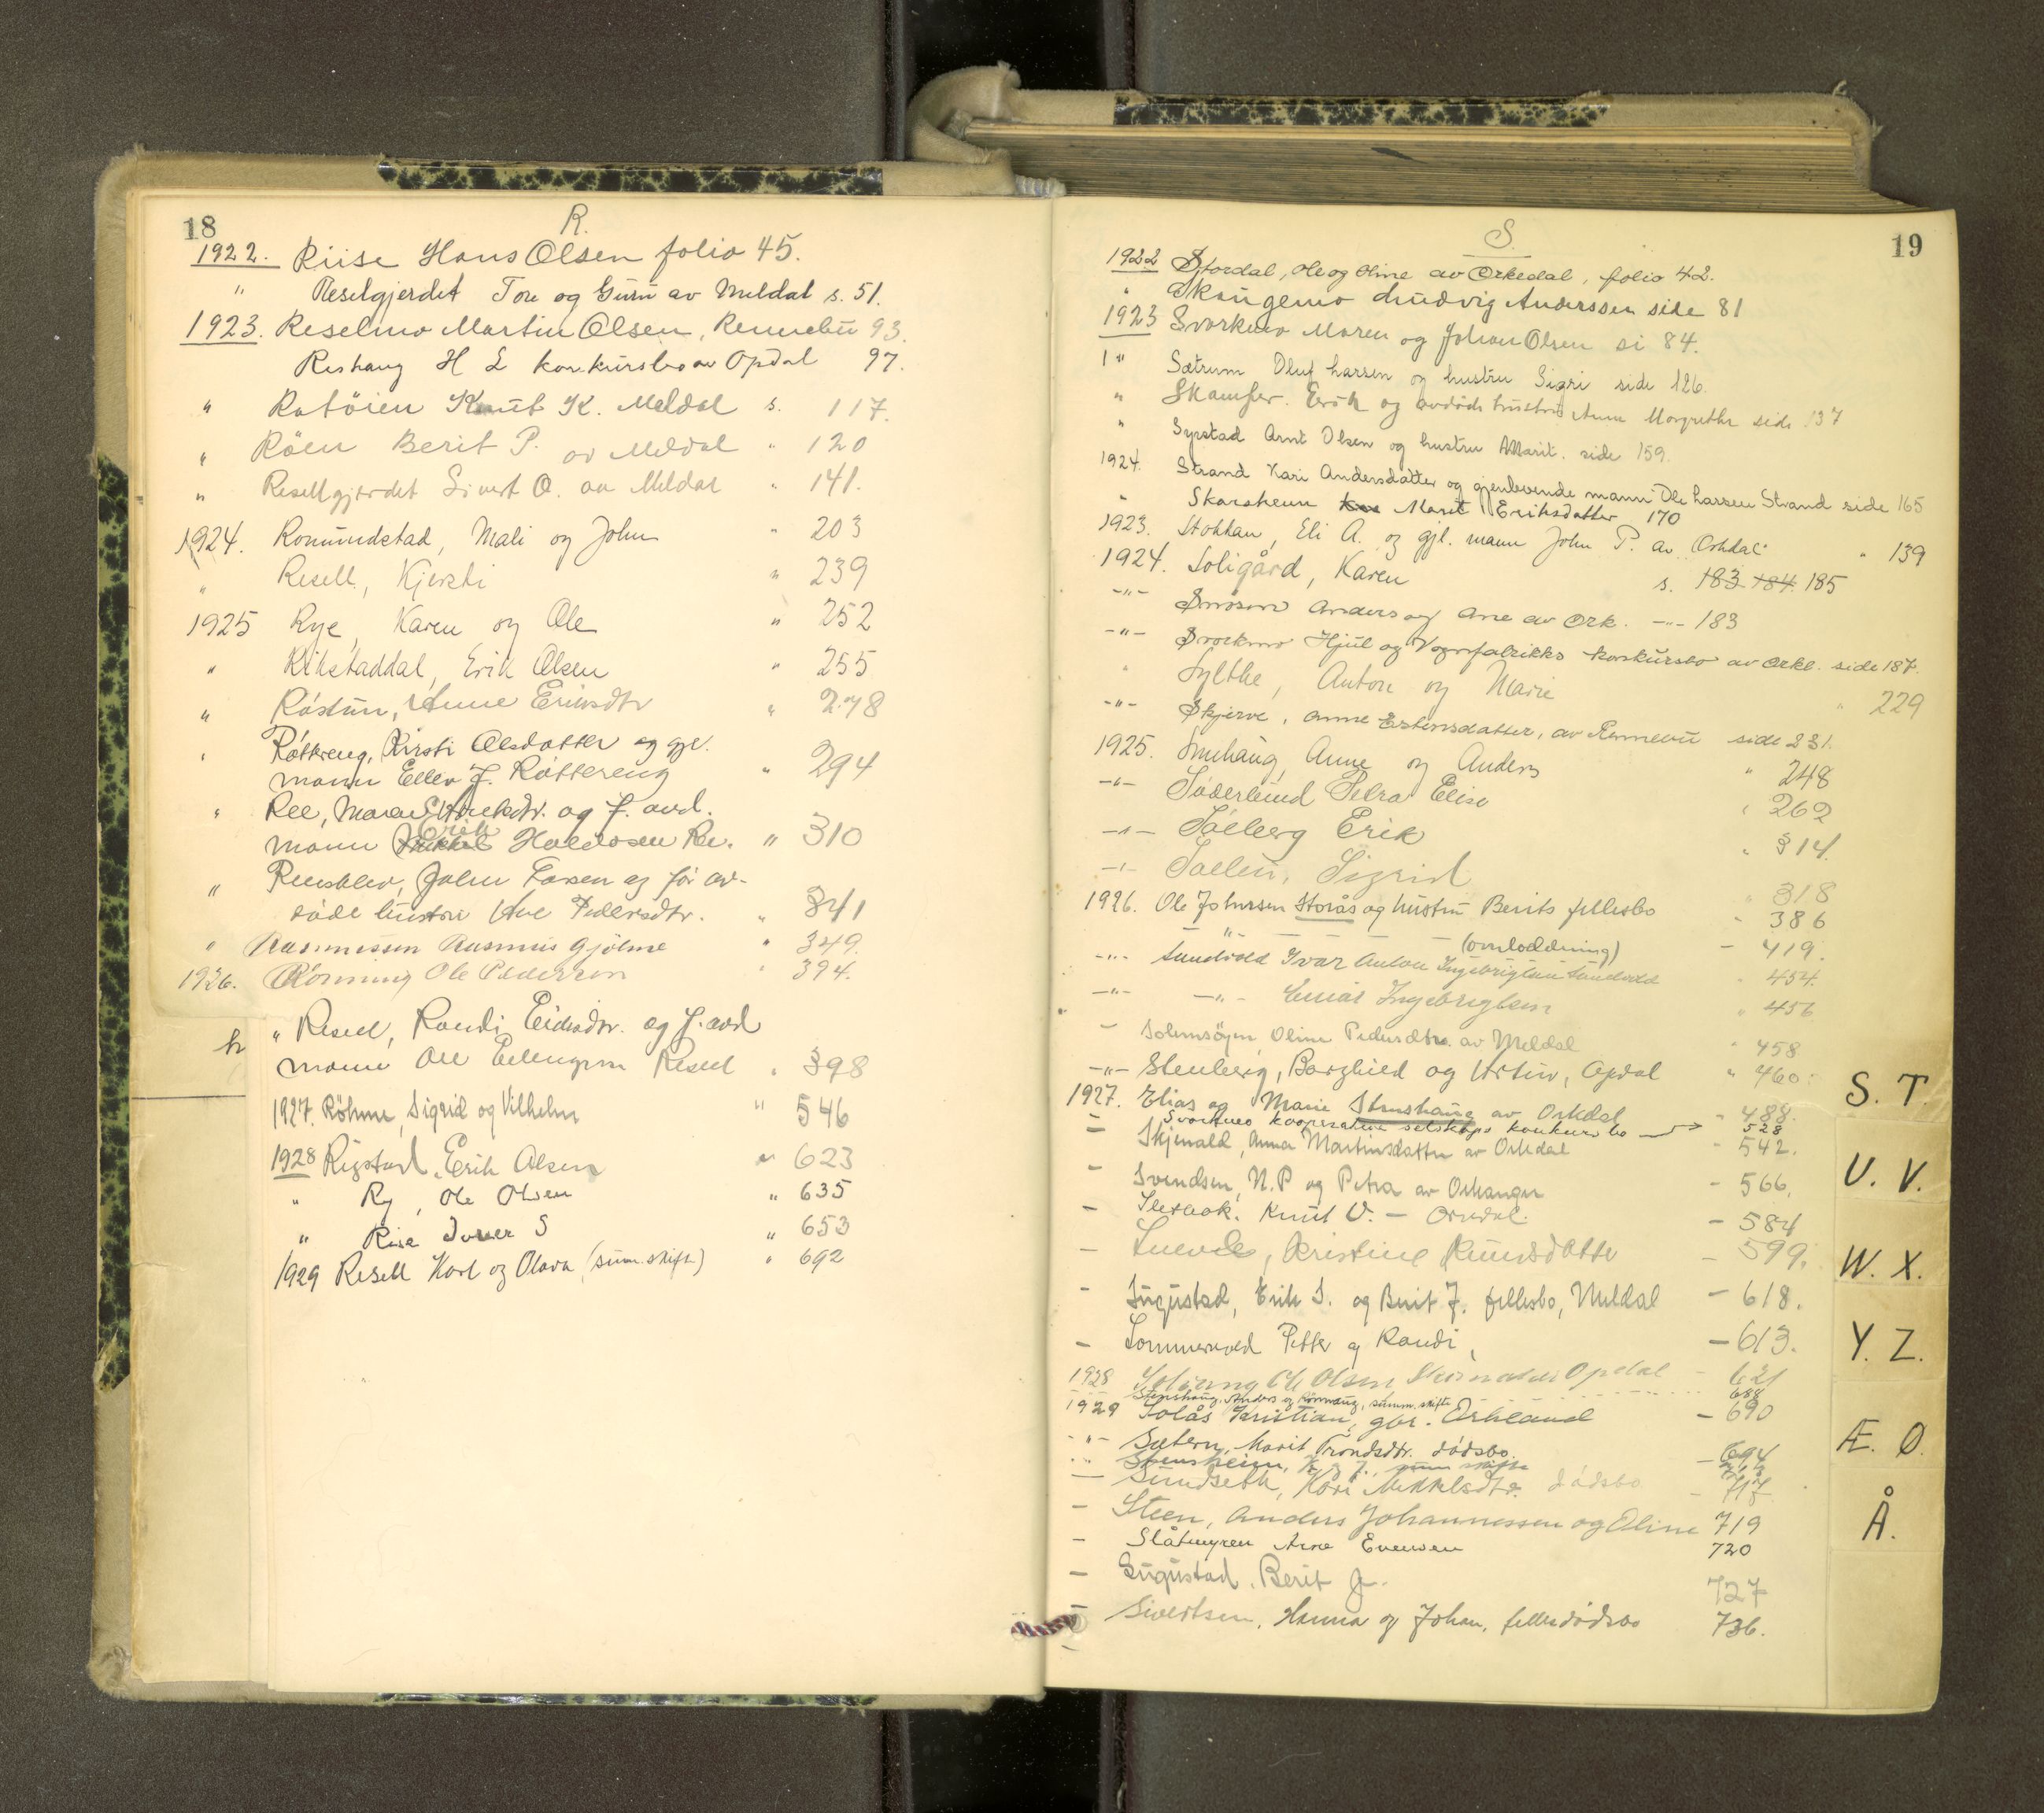 18
R.
1922. Riise Hans Olsen folio 45.
" Reselgjerdet Tore og Guru av Meldal s. 51.
1923. Reselmo Martin Olsen, Rennebu 93.
Reshaug H L konkursbo av Opdal 97.
" Ratöien Knut K. Meldal s. 117.
" Röen Berit P. av Meldal " 120
" Resellgjerdet Sivert O. av Meldal " 141.
1924. Romundstad, Mali og John " 203
" Resell, Kjersti " 239
1925 Rye, Karen og Ole " 252
" Rikstaddal, Erik Olsen " 255
" Röstun, Anne Eriksdtr " 278
" Röttereng, Kirsti Olsdatter og gjl.
mann Ellev J. Röttereng " 294
" Ree, Marit dtr. og f. avd.
mann Erik Haldosen Re. " 310
" John Larsen og før av-
døde hustru Ane Pedersdtr. " 341
" Rasmussen Rasmus Gjölme " 349.
1926. Rönning Ole Pedersen " 394.
" Resell, Randi Eidsdtr. og f. avd
mann Ole Resell " 398
1927. Röhme, Sigrid og Vilhelm " 546
1928 Rigstad, Erik Olsen " 623
" Ry, Ole Olsen " 635
" Rise Iver S " 653
1929 Resell Karl og Olava (sum. skifte) " 692
19
S.
1922 Stordal, Ole og Oline av Orkedal, folio 42.
" Skaugemo Ludvig Anderssen side 81
1923 Svorkmo Maren og Johan Olsen si 84.
1 " Sætrum Oluf Larsen og hustru Sigri side 126.
" Skamfer. Erik og avdøde hustru Anne Margrethe side 137
" Syrstad Arnt Olsen og hustru Marit. side 159.
1924. Strand Kari Andersdatter og gjenlevende mann Ole Larsen Strand side 165
" Skarsheim Marit Eriksdatter 170
1923. Stokkan, Eli A. og gjl. mann John P. av Orkdal " 139
1924. Soligård, Karen s. 183 184 185
-"- Anders og Ane av Ork. -"- 183
-"- Svorkmo Hjul og Vognfabrikks konkursbo av Orkl. side 187.
" Sylthe, Anton og Marie " 229
-"- Skjerve, Anne Estensdatter, av Rennebu side 231.
1925. Smehaug, Anne og Anders " 248
-"- Söderlund Petra Elise " 262
-"- Solberg Erik " 314.
-"- Sollin, Sigrid " 318
1926. Ole Johnsen Storås og hustru Berits fellesbo - 386
" - - - (omloddning) - 419.
-"- Sundvold Ivar Anton Ingebrigtsen Sundvold " 454.
-"- -"- Einar Ingebrigtsen " 456
- Solemsöyen Oline Pedersdtr. av Meldal " 458
-"- Stenberg, Borghild og , Opdal " 460.
1927. Elias og Marie Stenshaug av Orkdal - 488.
= Svorkmo kooperative selskaps konkursbo → 528
- Skjenald, Anna Martinsdatter av Orkdal - 542.
- Svendsen, N.P og Petra av Orkanger - 566.
- Knut O. - Orkdal. - 584
- , Kristine Knudsdatter - 599.
- Sugustad, Erik I. og Berit J. fellesbo, Meldal - 618.
- Sommervold Petter og Randi, - 613.
1928 Ole Olsen Opdal - 621
Stenshaug, Anders og , summ. skifte 688
1929 Solås Kristian, gbr. Orkland - 690
-"- Sætern, Marit Trondsdtr. dödsbo. - 694
Stensheim, , summ skifte
- Sundseth, Kari Mikkelsdtr. dödsbo - 717
- Steen, Anders Johannessen og Oline 719
- Slåtmyren Arne Evensen 720
- Sugustad, Berit J. 727
- Sivertsen, Hanna og Johan, fellesdödsbo 736.
S. T.
U. V.
W. X.
Y. Z.
Æ. Ø.
Å.